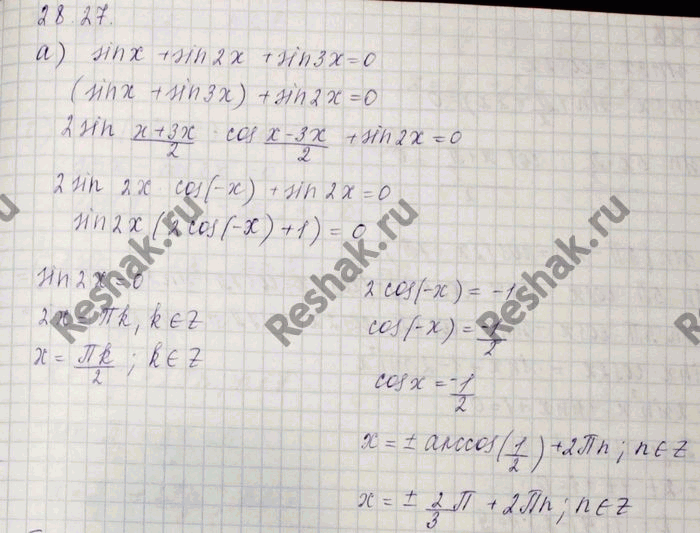 28.27.
а) sinx + sin2x + sin3x = 0
(sinx + sin3x) + sin2x = 0
2sin (x+3x)/2 · cos (x-3x)/2 + sin2x = 0
2sin 2x · cos(-x) + sin2x = 0
sin2x (2cos(-x) + 1) = 0
sin2x = 0
2x = πk, k ∈ Z
x = πk/2; k ∈ Z
2cos(-x) = -1
cos(-x) = -1/2
cosx = -1/2
x = ± arccos(1/2) + 2πn; n ∈ Z
x = ± 2/3 π + 2πn; n ∈ Z
Reshak.ru
Reshak.ru
Reshak.ru